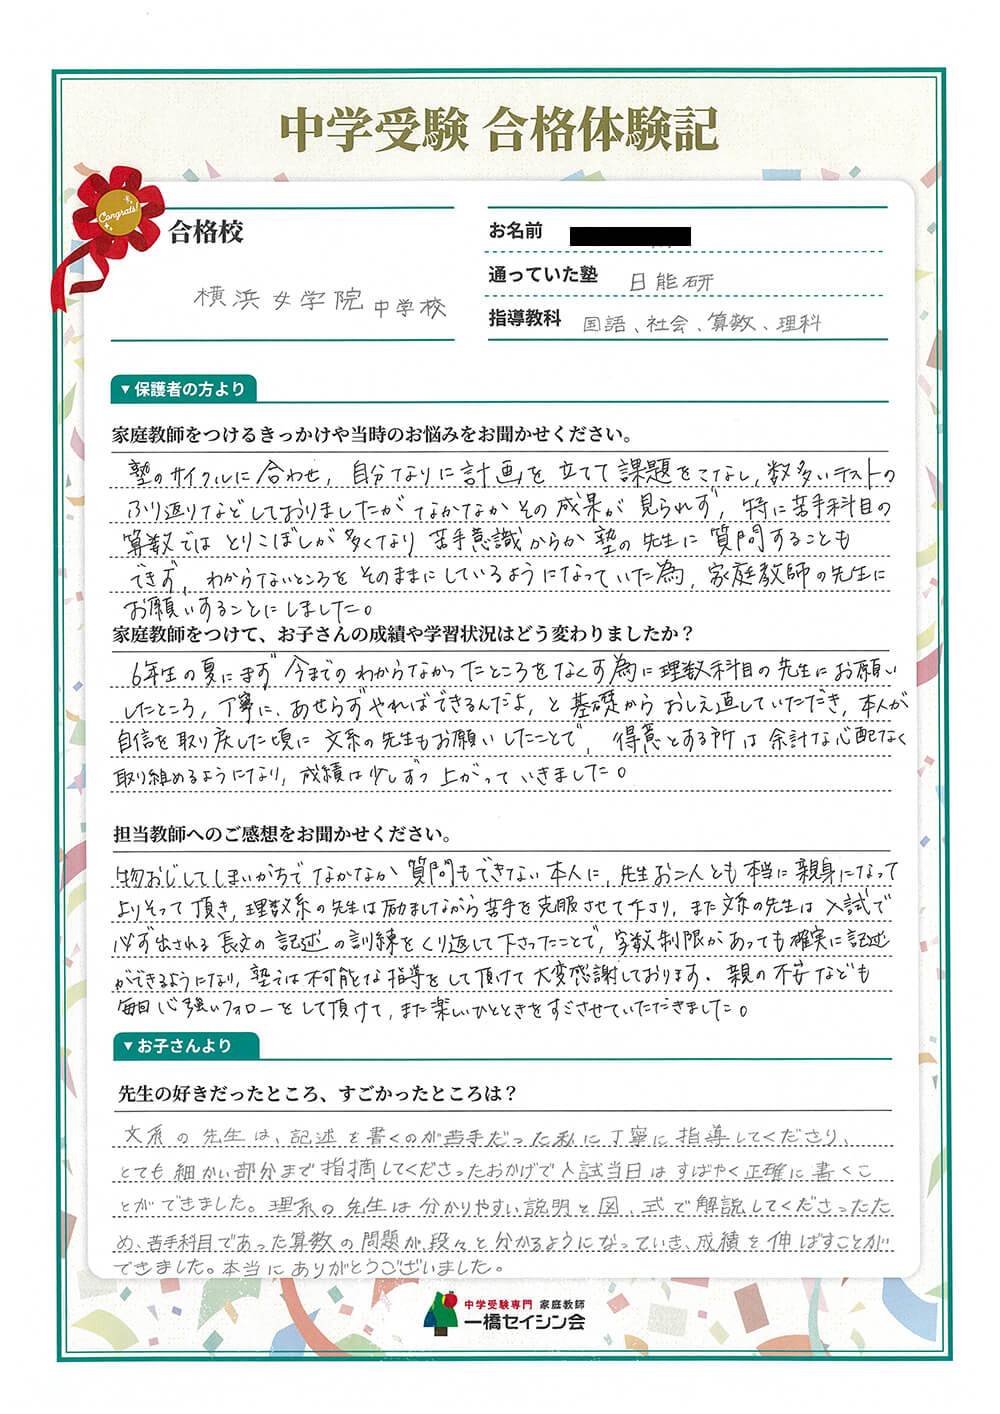 中学受験 合格体験記
Congrats!
合格校
横浜女学院中学校
お名前
通っていた塾 日能研
指導教科 国語、社会、算数、理科
▼保護者の方より
家庭教師をつけるきっかけや当時のお悩みをお聞かせください。
塾のサイクルに合わせ，自分なりに計画を立てて課題をこなし，数多いテストの
ふり返りなどしておりましたがなかなかその成果が見られず，特に苦手科目の
算数ではとりこぼしが多くなり苦手意識からか塾の先生に質問することも
できず，わからないところをそのままにしているようになっていた為，家庭教師の先生に
お願いすることにしました。
家庭教師をつけて、お子さんの成績や学習状況はどう変わりましたか？
6年生の夏にまず今までのわからなかったところをなくす為に理数科目の先生にお願い
したところ，丁寧に、あせらずやればできるんだよ，と基礎からおしえ直していただき，本人が
自信を取り戻した頃に文系の先生もお願いしたことで，得意とする所は余計な心配なく
取り組めるようになり，成績は少しずつ上がっていきました。
担当教師へのご感想をお聞かせください。
物おじしてしまいがちでなかなか質問もできない本人に，先生お二人とも本当に親身になって
よりそって頂き，理数系の先生は励ましながら苦手を克服させて下さり，また文系の先生は入試で
必ず出される長文の記述の訓練をくり返して下さったことで，字数制限があっても確実に記述
ができるようになり，塾では不可能な指導をして頂けて大変感謝しております。親の不安なども
毎回心強いフォローをして頂けて，また楽しいひとときをすごさせていただきました。
▼お子さんより
先生の好きだったところ、すごかったところは？
文系の先生は、記述を書くのが苦手だった私に丁寧に指導してくださり、
とても細かい部分まで指摘してくださったおかげで入試当日はすばやく正確に書くこ
とができました。理系の先生は分かりやすい説明と図、式で解説してくださったた
め、苦手科目であった算数の問題が段々と分かるようになっていき、成績を伸ばすことが
できました。本当にありがとうございました。
中学受験専門 家庭教師
一橋セイシン会